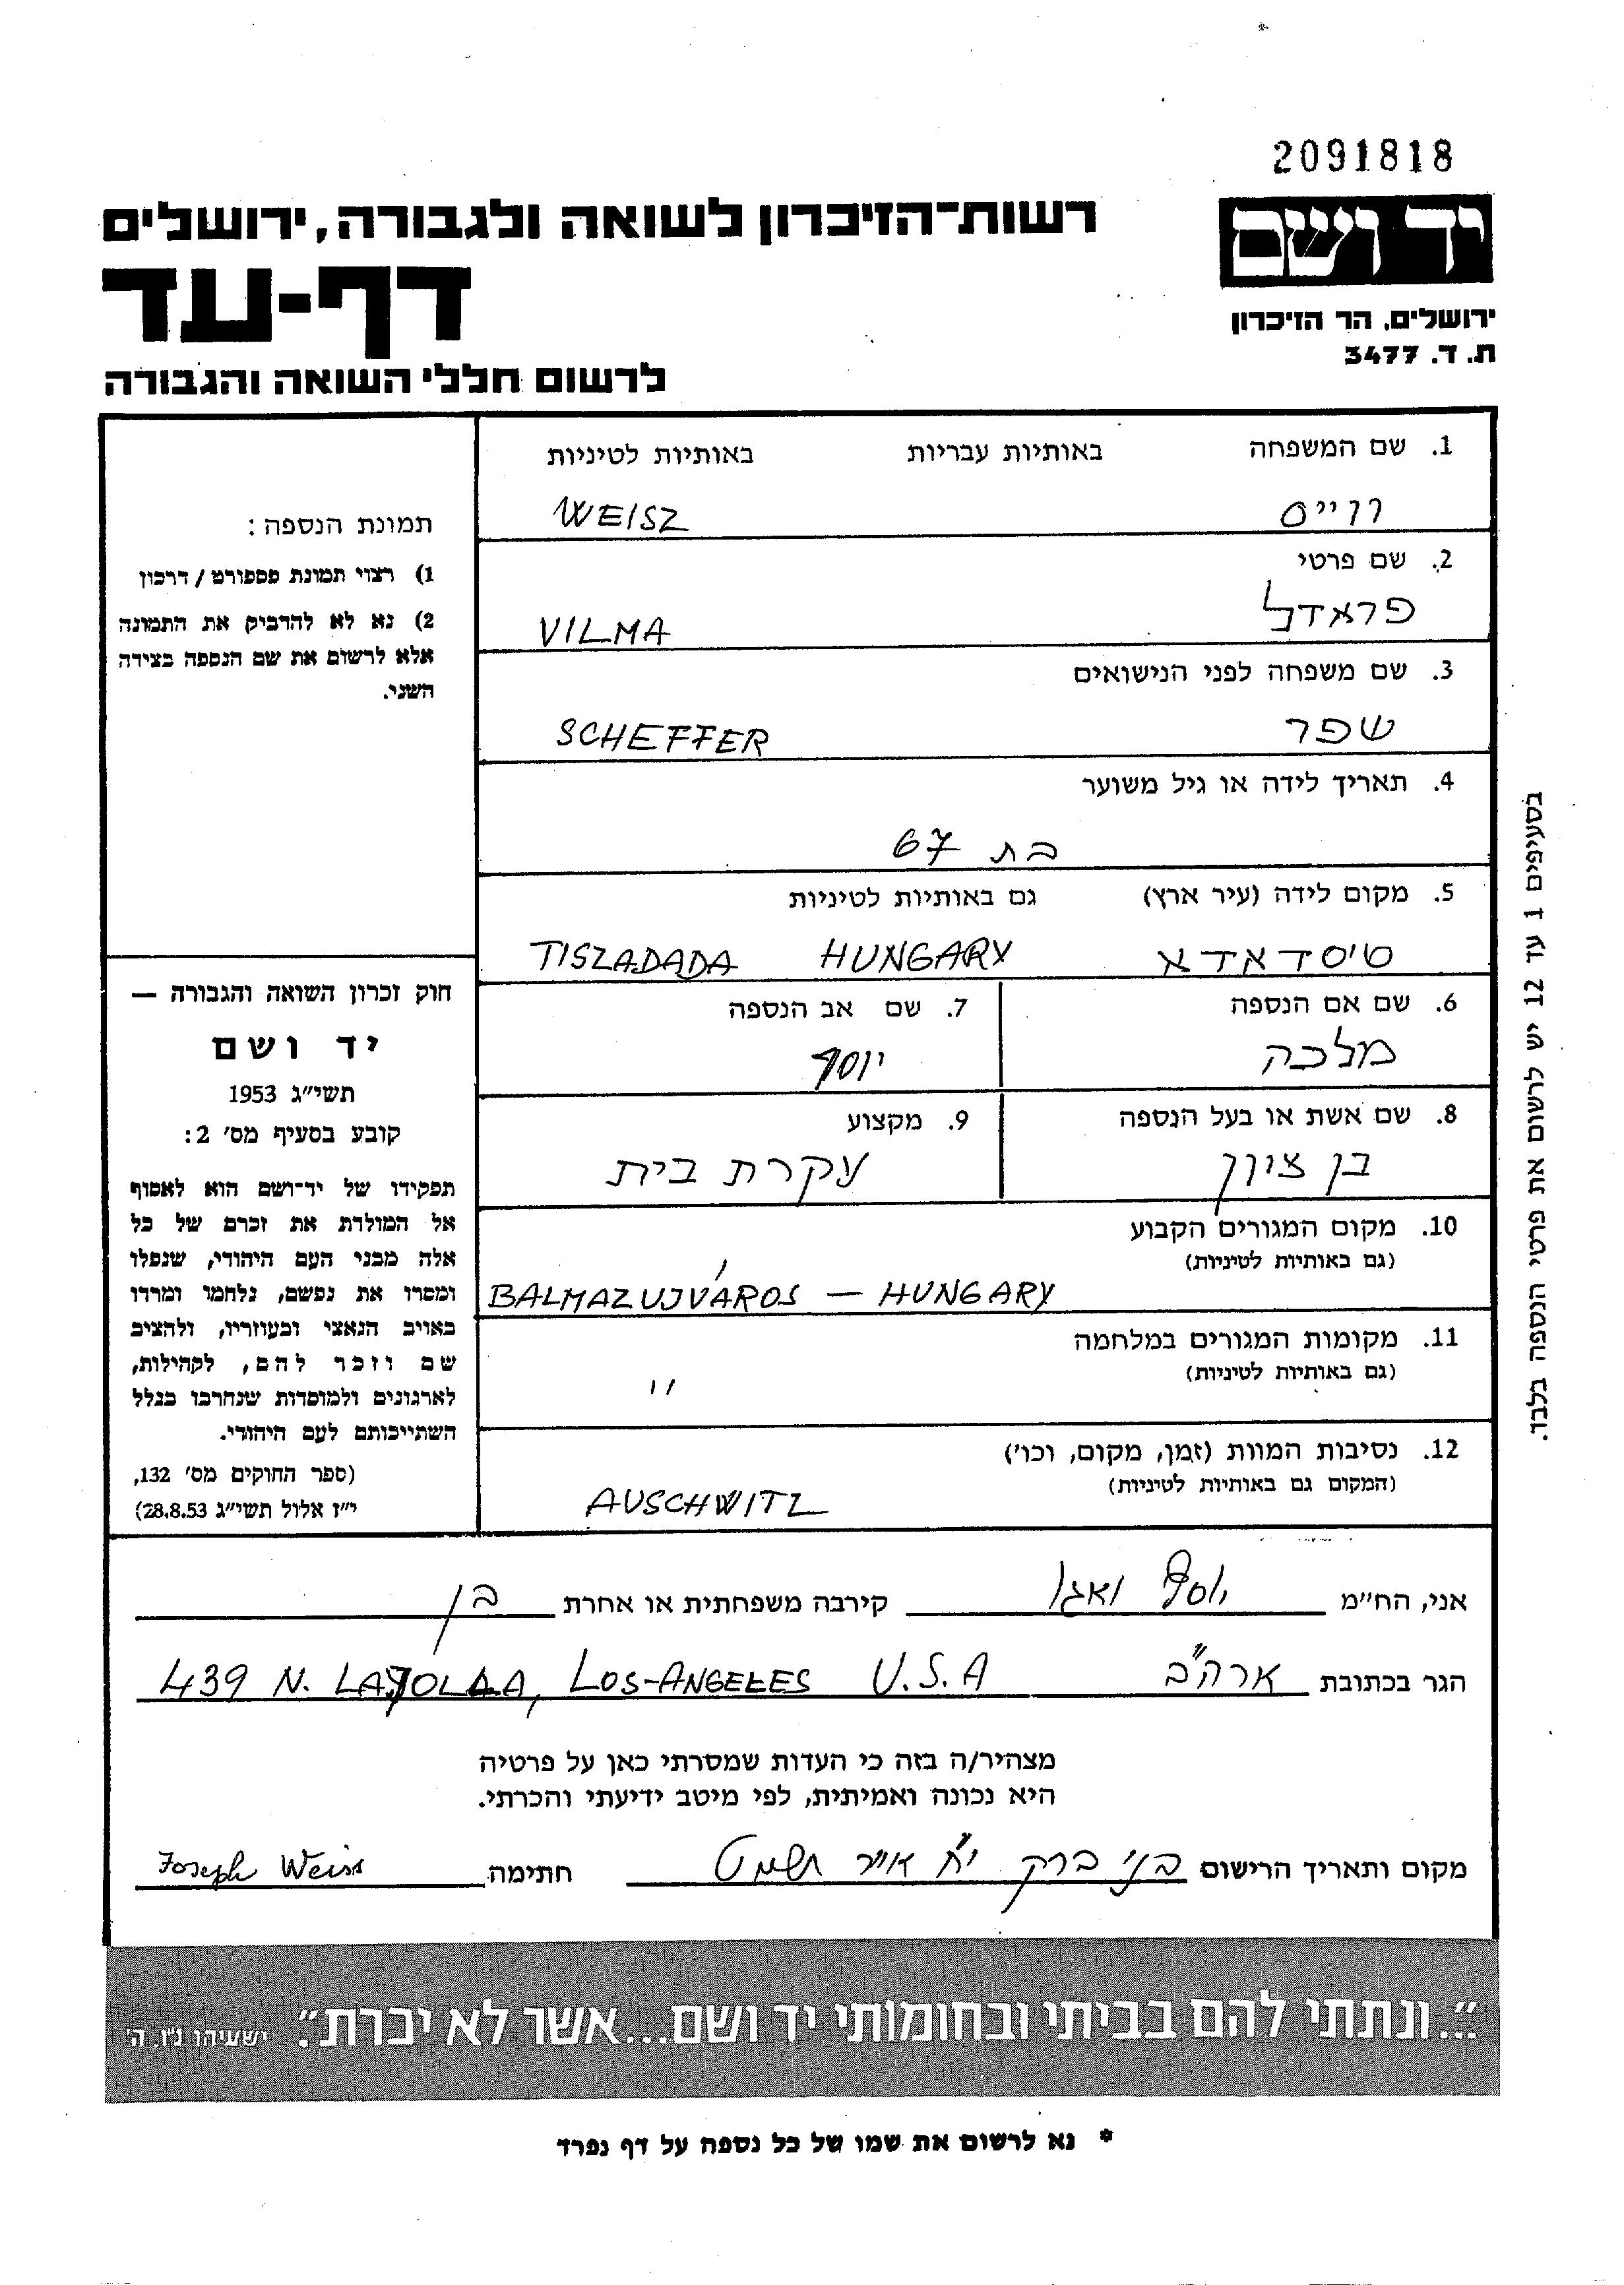 2091818
יד ושם
רשות־הזיכרון לשואה ולגבורה, ירושלים
דף-עד
ירושלים, הר הזיכרון
ת. ד. 3477
לרשום חללי השואה והגבורה
1. שם המשפחה באותיות עבריות באותיות לטיניות
ווייס WEISZ
2. שם פרטי
פראדל VILMA
3. שם משפחה לפני הנישואים
שפר SCHEFFER
4. תאריך לידה או גיל משוער
בת 67
5. מקום לידה (עיר ארץ) גם באותיות לטיניות
טיסדאדא TISZADADA HUNGARY
6. שם אם הנספה 7. שם אב הנספה
מלכה יוסף
8. שם אשת או בעל הנספה 9. מקצוע
בן ציון עקרת בית
10. מקום המגורים הקבוע
(גם באותיות לטיניות)
BALMAZUJVÁROS — HUNGARY
11. מקומות המגורים במלחמה
(גם באותיות לטיניות)
"
12. נסיבות המוות (זמן, מקום, וכו')
(המקום גם באותיות לטיניות)
AUSCHWITZ
תמונת הנספה:
1) רצוי תמונת פספורט / דרכון
2) נא לא להדביק את התמונה
אלא לרשום את שם הנספה בצידה
השני.
חוק זכרון השואה והגבורה —
יד ושם
תשי"ג 1953
קובע בסעיף מס' 2:
תפקידו של יד־ושם הוא לאסוף
אל המולדת את זכרם של כל
אלה מבני העם היהודי, שנפלו
ומסרו את נפשם, נלחמו ומרדו
באויב הנאצי ובעוזריו, ולהציב
שם וזכר להם, לקהילות,
לארגונים ולמוסדות שנחרבו בגלל
השתייכותם לעם היהודי.
(ספר החוקים מס' 132,
י"ז אלול תשי"ג 28.8.53)
בסעיפים 1 עד 12 יש לרשום את פרטי הנספה בלבד.
אני, הח"מ יוסף קירבה משפחתית או אחרת בן
הגר בכתובת ארה"ב 439 N. LAJOLLA, LOS-ANGELES U.S.A
מצהיר/ה בזה כי העדות שמסרתי כאן על פרטיה
היא נכונה ואמיתית, לפי מיטב ידיעתי והכרתי.
מקום ותאריך הרישום בני ברק י"ח אייר תשמט חתימה Joseph Weiss
"...ונתתי להם בביתי ובחומותי יד ושם...אשר לא יכרת". ישעיהו נ"ו, ה'
* נא לרשום את שמו של כל נספה על דף נפרד